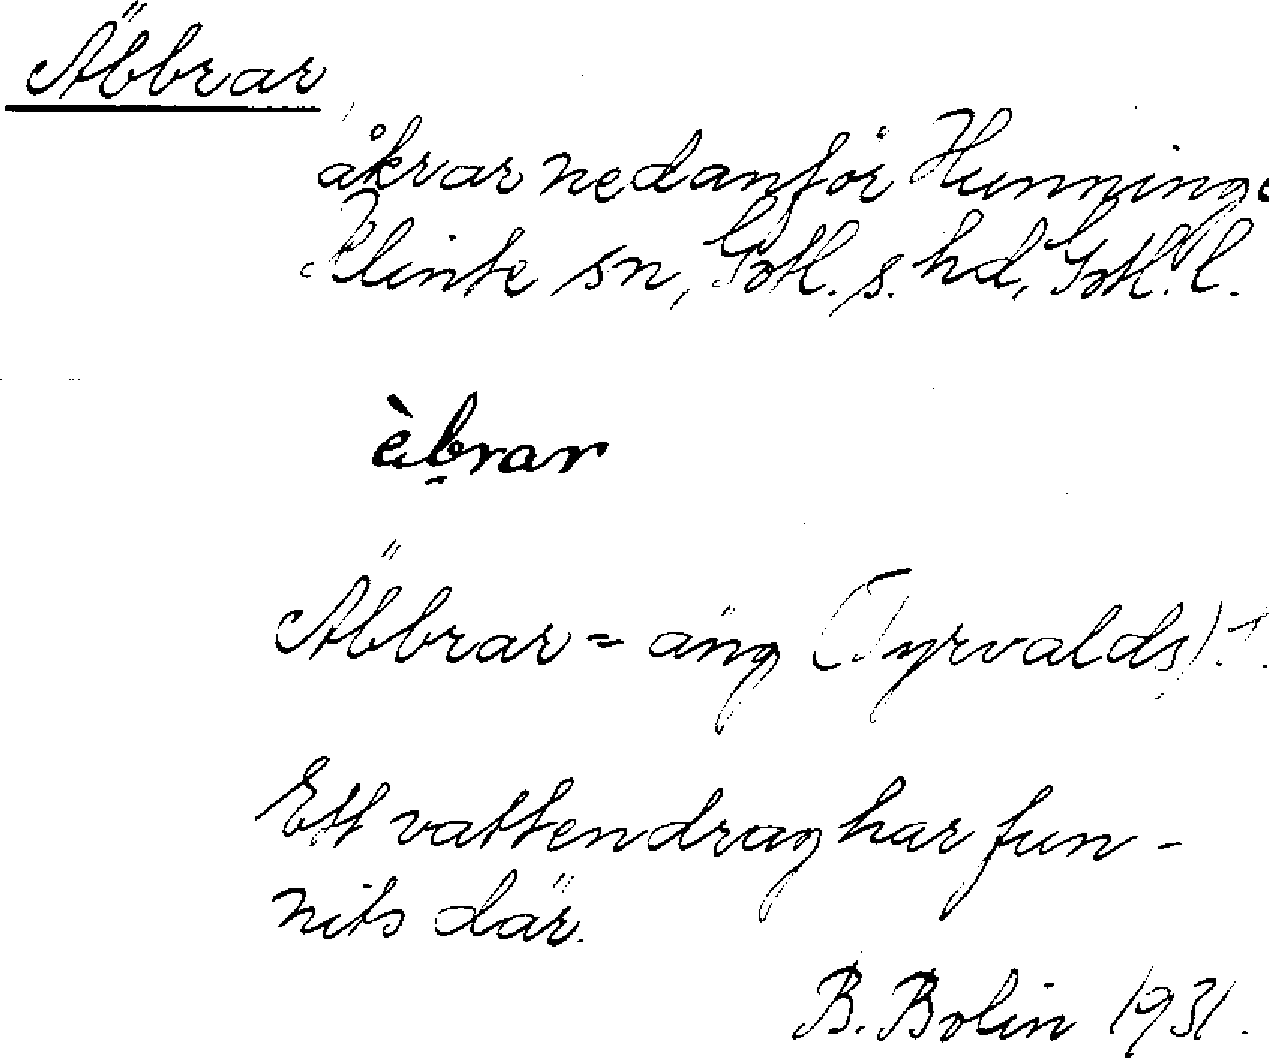 Äbbrar
åkrar nedanför Hunninge
Klinte sn, Gotl. s. hd, Gotl. l.
èḇrar
Äbbrar = äng (Tyrvalds).
Ett vattendrag har fun-
nits där.
B. Bolin 1931.